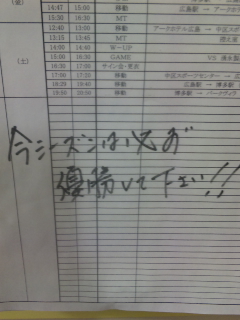 14:47 15:00 移動 広島駅 → アークホテル
15:30 16:30 MT
12:40 13:00 移動 アークホテル広島 → 中区スポ
13:15 13:45 MT 控え室
14:00 14:40 W-UP
15:00 16:30 GAME VS
16:30 17:00 サイン会・見送
17:00 17:20 移動 中区スポーツセンター → 広島
18:29 19:40 移動 広島駅 → 博多駅
19:50 20:00 移動 博多駅 → パークヴィラ
(土)
今シーズンは必ず
優勝して下さい!!